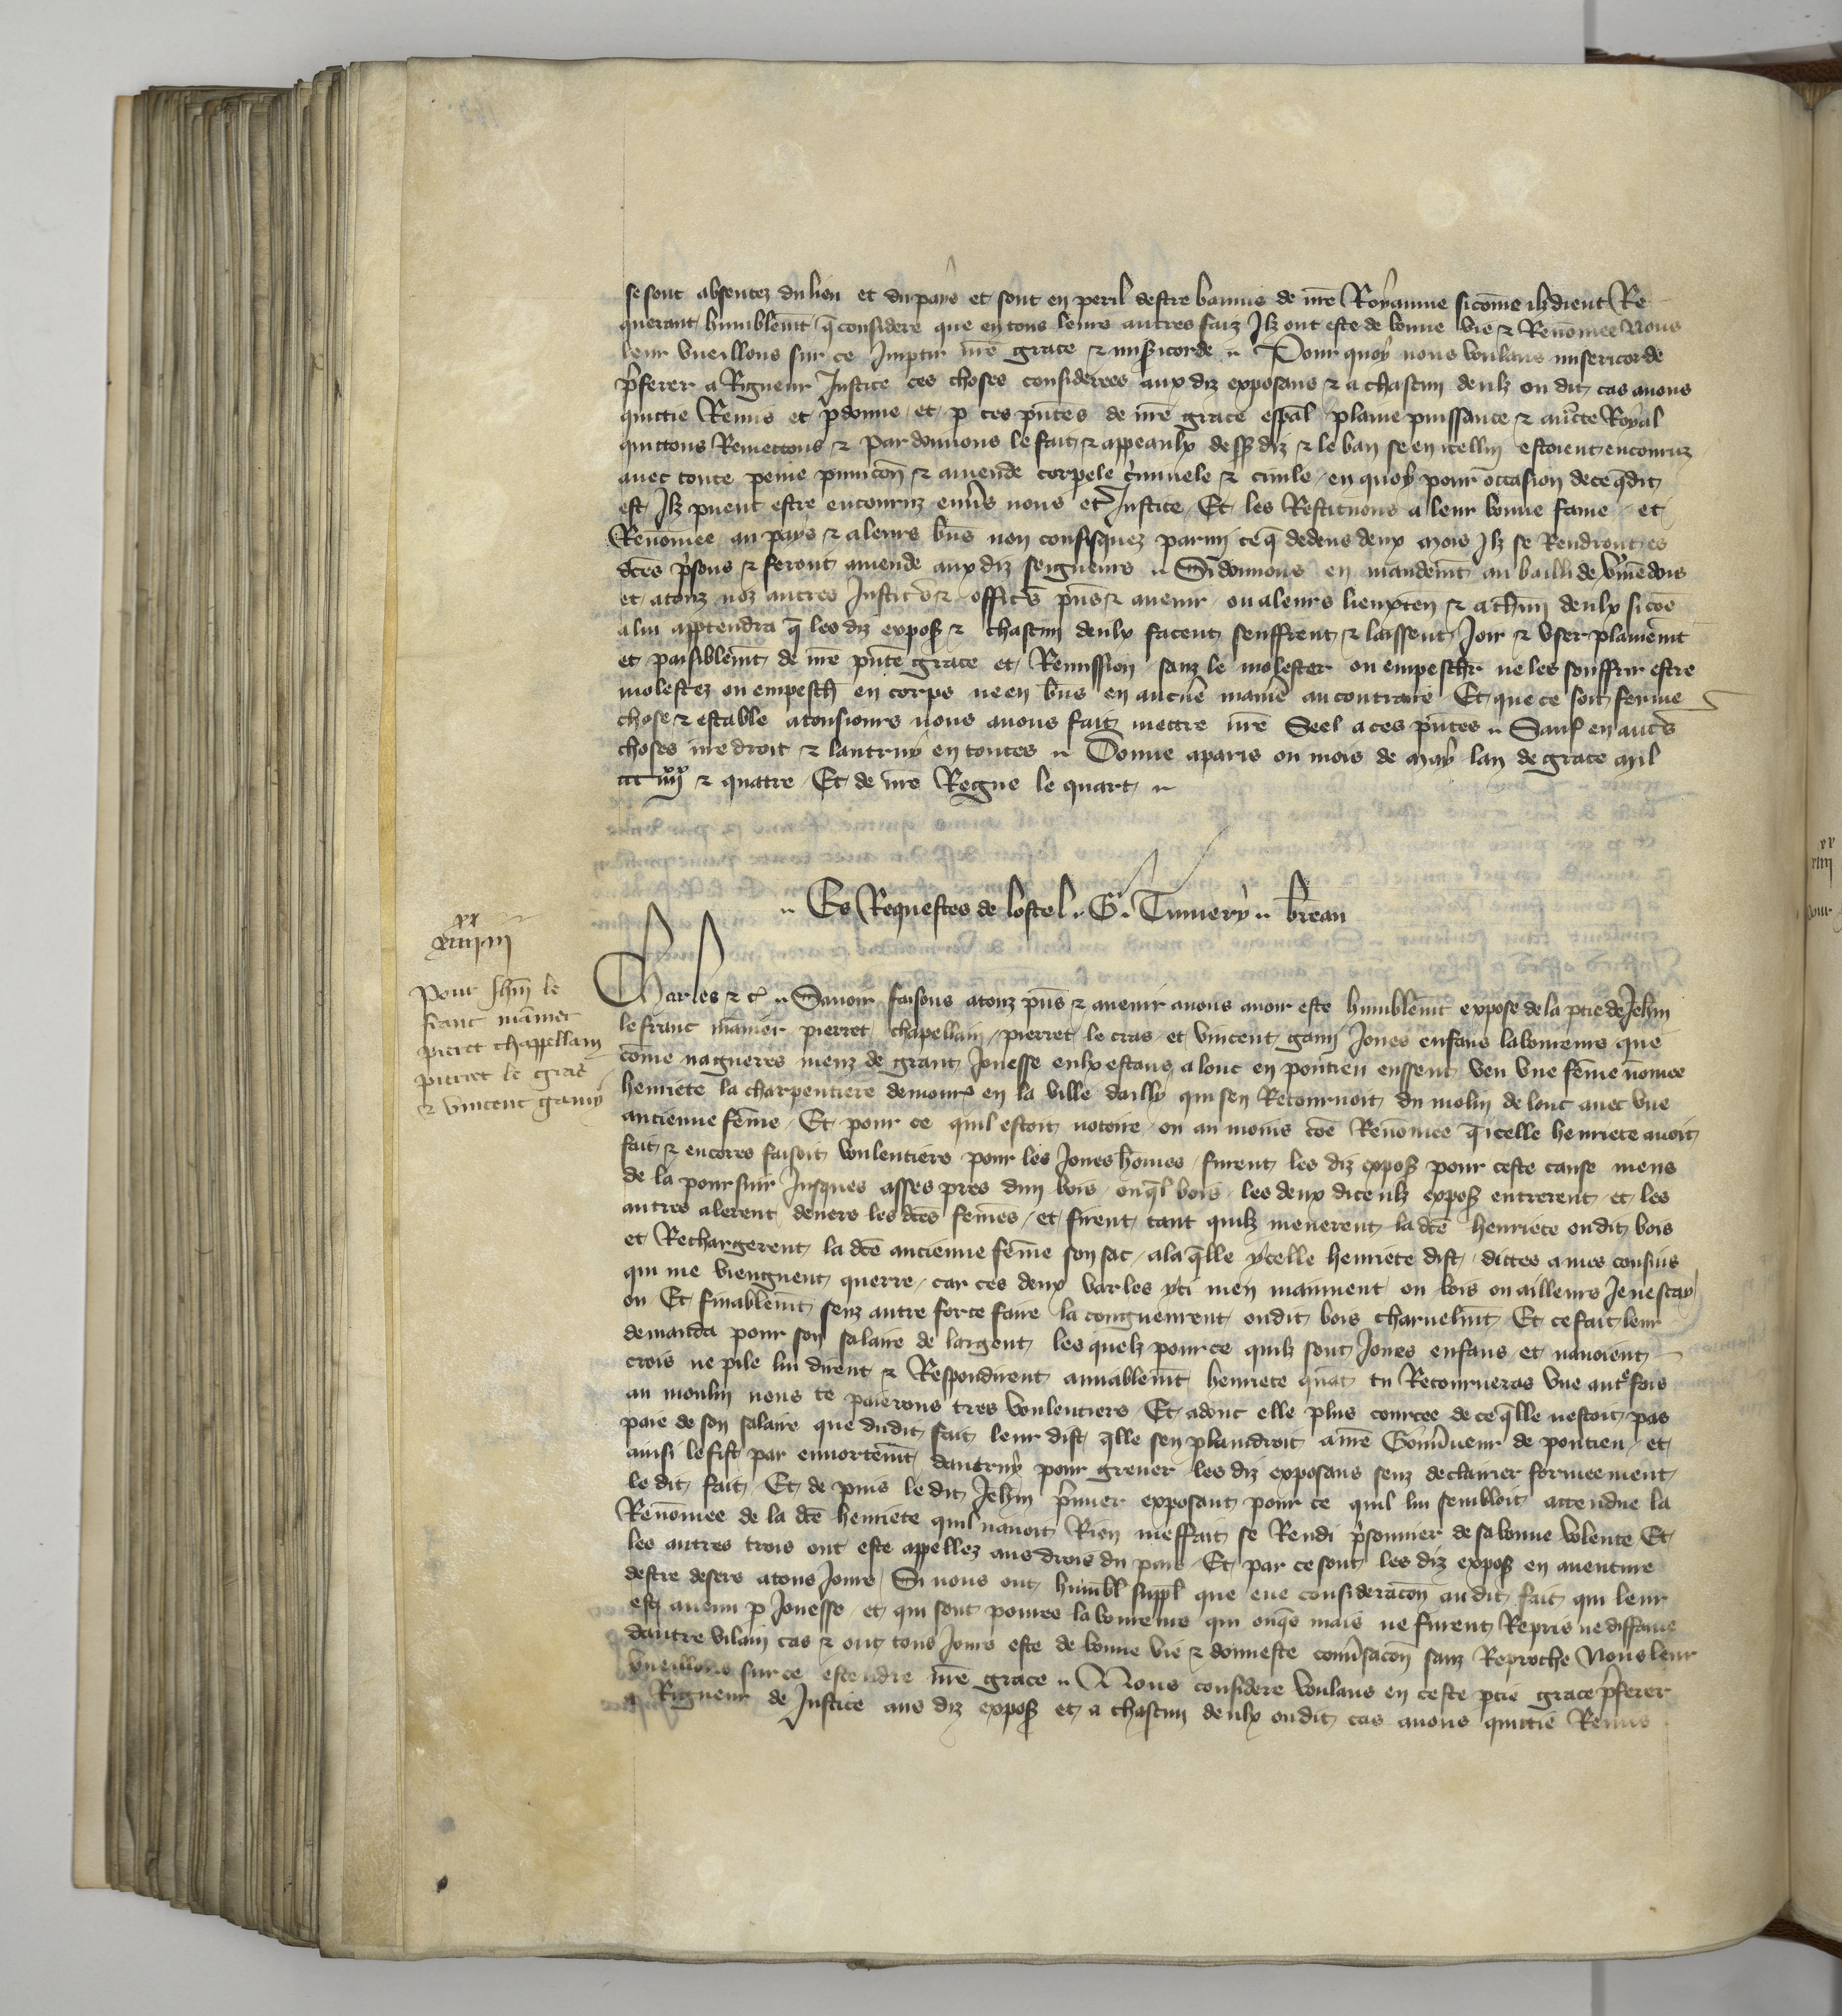 se sont absentez du lieu et du pays et sont en peril destre bannis de nr̃e Royaume sicom̃e ilz dient Re
querant humblem̃t q̃ considere que en tous leurs autres faiz Ilz ont este de bonne vie & Renom̃ee Nous
leur vueillons sur ce Imptir nr̃e grace & misericorde Pour quoy nous voulans misericorde
p̃ferer a Rigueur Justice ces choses considerees aux diz exposans & a chascun deulz ou dit cas auons
quittie Remis et pdonne et p ces p̃ntes de nr̃e grace esp̃al plaine puissance & auc̃te Royal
quittons Remettons & pardonnons le fait & appeaulx dess diz & le ban se en icellui estoient encouruz
auec toute peine punic̃on & amende corpele c̃iminele & ciuile en quoy pour occasion de ce q̃ dit
est Ilz puent estre encouruz enũs nous et Justice Et les Restituons a leur bonne fame et
Renom̃ee au pays & a leurs bñs non confisquez parmi ce q̃ dedens deux mois Ilz se Rendront es
dc̃es p̃sons & feront amende aux diz seigneurs Si donnons en mandem̃t au bailli de Vermẽdois
et a touz noz autres Justic̃s & offic̃s p̃ns & auenir ou a leurs lieuxten & a ch̃un deulx si cõe
a lui app̃tendra q̃ les diz expos & chascun deulx facent seuffrent & laissent Joir & vser plainem̃t
et paisiblem̃t de nr̃e p̃nte grace et Remission sanz le molester ou empescher ne les souffrir estre
molestez ou empesch en corps ne en bñs en aucũe manie au contraire Et que ce soit ferme
chose & estable a tousiours nous auons fait mettre nr̃e Seel a ces p̃ntes Sauf en autr̃s
choses nr̃e droit & lautruy en toutes Donne a paris ou mois de may lan de grace mil
ccc iiiixx & quatre Et de nr̃e Regne le quart
Es Requestes de lostel G. Tumery brean
xx
xiiii iii
Pour Jeh̃n le
franc mãnier
pieret chappellain
pierret le gras
& vincent gamy
Charles &c Sauoir faisons a touz p̃ns & auenir auons auoir este humblem̃t expose de la ptie de Jeh̃n
le franc mãnier pierret chapellain pierret le cras et vincent gami Jones enfans laboureurs que
com̃e nagueres meuz de grant Jonesse eulx estans a louc en pontieu eussent veu vne fem̃e nom̃ee
henriete la charpentiere demour en la ville dailly qui sen Retournoit du molin de louc auec vne
ancienne fem̃e Et pour ce quil estoit notoire ou au moins cõe Renom̃ee q̃ icelle henriete auoit
fait & encores faisoit voulentiers pour les Jones hom̃es furent les diz expos pour ceste cause meus
de la poursuir Jusques asses pres dun bois ouq̃l bois les deux diceulz expos entrerent et les
autres alerent deuers les dc̃es fem̃es et firent tant quilz menerent la dc̃e henriete ou dit bois
et Rechargerent la dc̃e ancienne fem̃e son sac a laq̃lle ycelle henriete dist dittes a mes cousins
qui me viengnent querre car ces deux varles yci men mainnent ou bois ou ailleurs Je ne scay
ou Et finablem̃t senz autre force faire la congneurent ou dit bois charnelm̃t Et ce fait leur
demanda pour son salaire de largent les quelz pour ce quilz sont Jones enfans et nauoient
crois ne pile lui dirent & Respondirent amiablem̃t henriete quãt tu Retourneras vne autre fois
au moulin nous te paierons tres voulentiers Et adonc elle plus courcee de ce q̃lle nestoit pas
paie de son salaire que du dit fait leur dist q̃lle sen plaindroit a nr̃e Gouũneur de pontieu et
ainsi le fist par enortem̃t dautruy pour greuer les diz exposans senz declairier formeement
le dit fait Et de puis le dit Jeh̃n p̃mier exposant pour ce quil lui sembloit attendue la
Renom̃ee de la dc̃e henriete quil nauoit Rien meffait se Rendi p̃sonnier de sa bonne volente Et
les autres trois ont este appellez aus drois du pais Et par ce sont les diz expos en auenture
destre desers a tous Jours Si nous ont humbl suppl que eue considerac̃on au dit fait qui leur
est auenu p Jonesse et qui sont poures laboureurs qui onq̃s mais ne furent Repris ne diffame
dautre vilain cas & ont tous Jours este de bonne vie & donneste conũsac̃on sanz Reproche Nous leur
vueillons sur ce estendre nr̃e grace Nous considere voulans en ceste ptie grace p̃ferer
a Rigueur de Justice aus diz expos et a chascun deulx ou dit cas auons quittie Remis